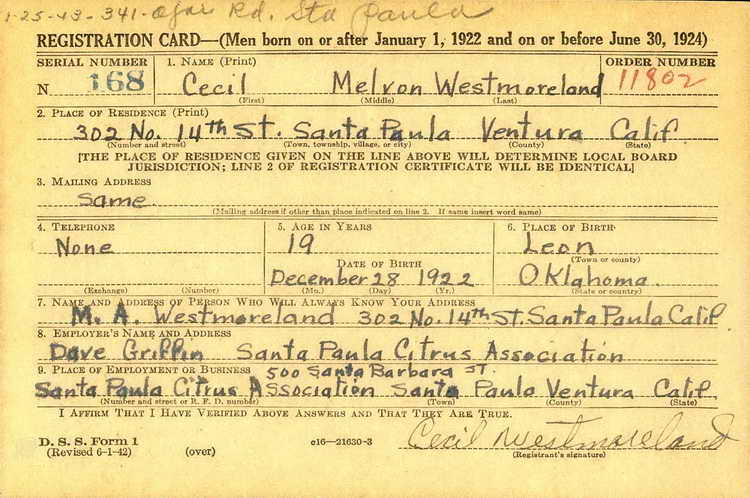 1-25-43-341-Ojai Rd. Sta Paula
REGISTRATION CARD—(Men born on or after January 1, 1922 and on or before June 30, 1924)
SERIAL NUMBER 1. NAME (Print) ORDER NUMBER
N 168 Cecil Melvon Westmoreland 11802
(First) (Middle) (Last)
2. PLACE OF RESIDENCE (Print)
302 No. 14th St. Santa Paula Ventura Calif.
(Number and street) (Town, township, village, or city) (County) (State)
[THE PLACE OF RESIDENCE GIVEN ON THE LINE ABOVE WILL DETERMINE LOCAL BOARD
JURISDICTION; LINE 2 OF REGISTRATION CERTIFICATE WILL BE IDENTICAL]
3. MAILING ADDRESS
Same.
(Mailing address if other than place indicated on line 2. If same insert word same)
4. TELEPHONE 5. AGE IN YEARS 6. PLACE OF BIRTH
None 19 Leon
(Town or county)
DATE OF BIRTH
December 28 1922 Oklahoma.
(Exchange) (Number) (Mo.) (Day) (Yr.) (State or country)
7. NAME AND ADDRESS OF PERSON WHO WILL ALWAYS KNOW YOUR ADDRESS
M. A. Westmoreland 302 No. 14th St. Santa Paula Calif
8. EMPLOYER'S NAME AND ADDRESS
Dave Griffin Santa Paula Citrus Association
9. PLACE OF EMPLOYMENT OR BUSINESS 500 Santa Barbara ST.
Santa Paula Citrus Association Santa Paula Ventura Calif.
(Number and street or R. F. D. number) (Town) (County) (State)
I AFFIRM THAT I HAVE VERIFIED ABOVE ANSWERS AND THAT THEY ARE TRUE.
D. S. S. Form 1
(Revised 6-1-42) (over) c16—21630-3 Cecil Westmoreland
(Registrant's signature)